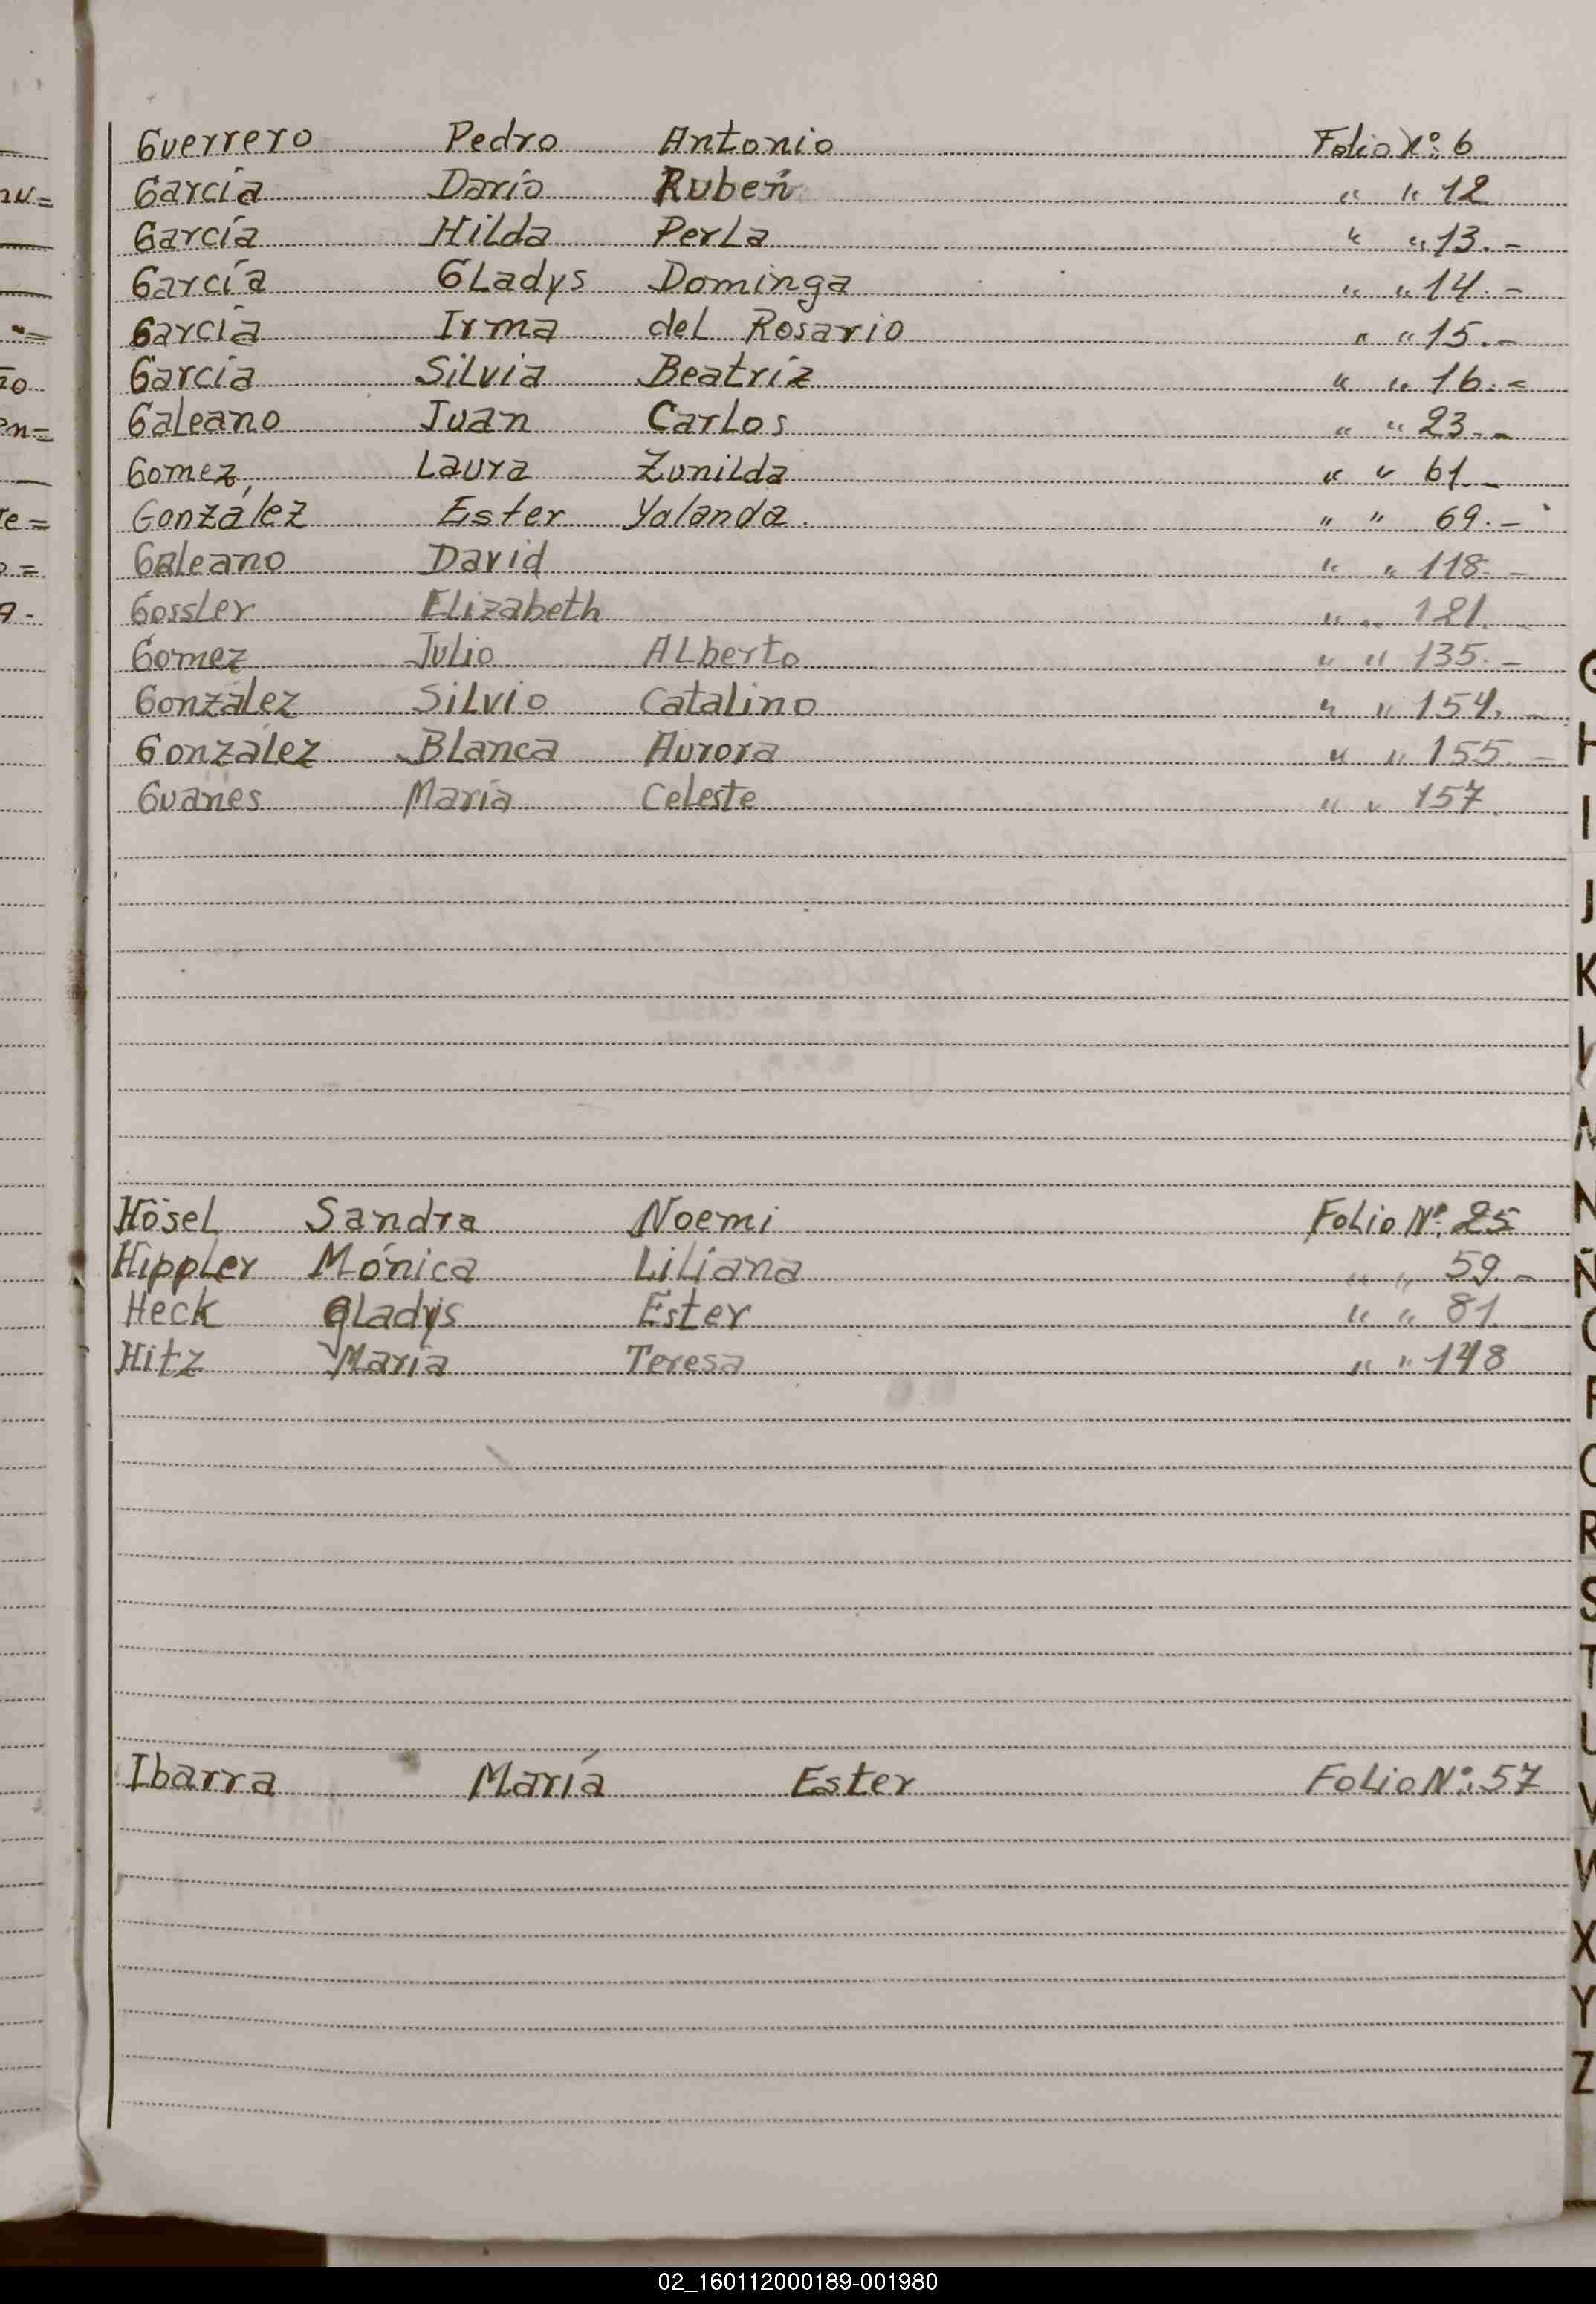 Guerrero Pedro Antonio Folio Nº: 6
García Darío Rubén " " 12
García Hilda Perla " " 13.-
García Gladys Dominga " " 14.-
García Irma del Rosario " " 15.-
García Silvia Beatríz " " 16.-
Galeano Juan Carlos " " 23.-
Gomez, Laura Zunilda " " 61.-
González Ester Yolanda. " " 69.-
Galeano David " " 118.-
Gossler Elizabeth " " 121.-
Gomez Julio Alberto " " 135.-
González Silvio Catalino " " 154.-
González Blanca Aurora " " 155.-
Guanes María Celeste " " 157
Hösel Sandra Noemi Folio Nº: 25
Hippler Mónica Liliana " " 59.-
Heck Gladys Ester " " 81.
Hitz María Teresa " " 148
Ibarra María Ester Folio Nº: 57
G
H
I
J
K
M
N
Ñ
O
P
Q
R
S
T
U
V
W
X
Y
Z
02_160112000189-001980